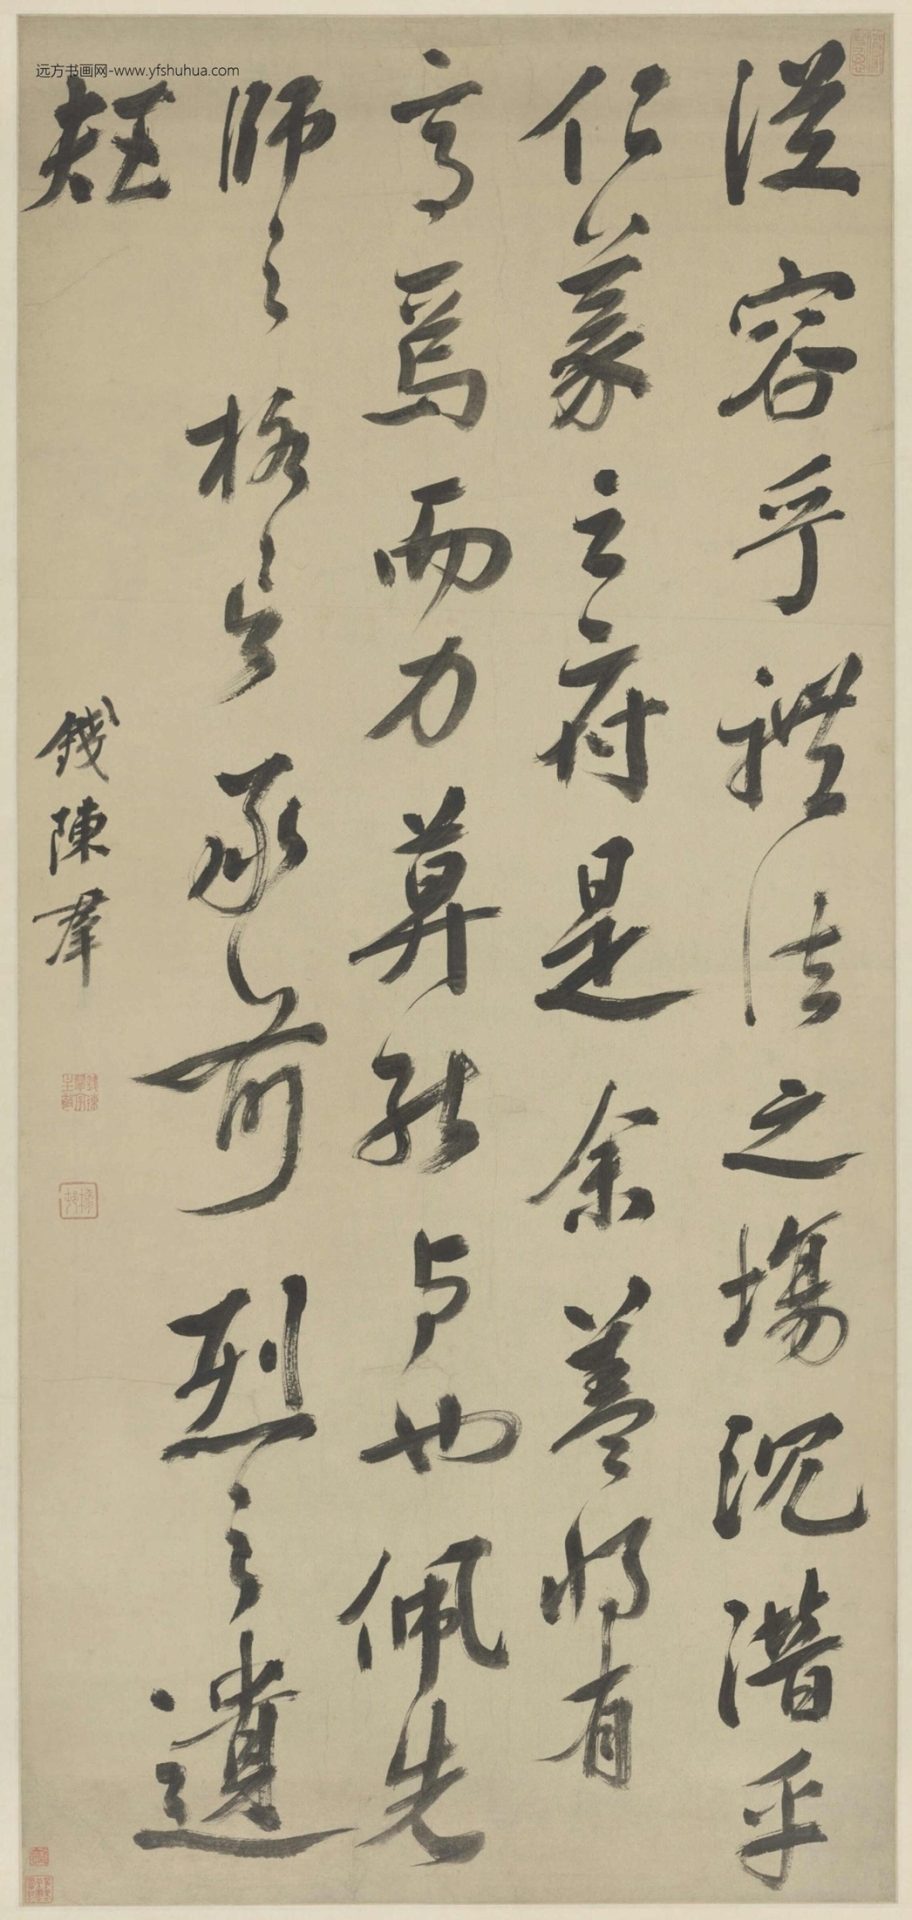 远方书画网-www.yfshuhua.com
從容乎禮法之塲沉潛乎
仁義之府是余蓋將有
意焉而力莫能与也佩先
師之格言承前烈之遺
矩
錢陳羣